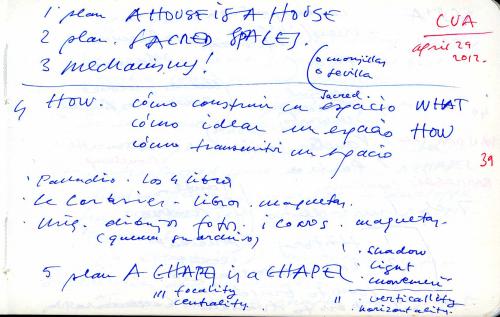 1 plan A HOUSE is A HOUSE
2 plan. SACRED SPACES.
3 mechanisms!
o monjillas
o Sevilla
Sacred.
CUA
april 29
2012.
4 HOW. cómo construir un espacio WHAT
cómo idear un espacio HOW
cómo transmitir un espacio
39
· Palladio. Los 4 libri
· Le Corbusier - libros. maquetas.
· Mies. dibujos fotos. iconos. maquetas.
(quema su archivo)
5 plan A CHAPEL is a CHAPEL
focality
centrality.
shadow
light
movement
verticality
horizontality.